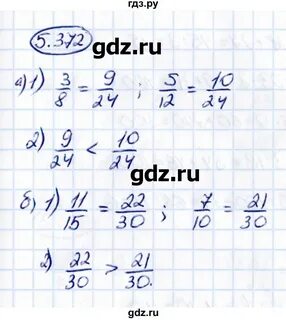 гдз.ру
5.372
gdz.ru
а) 1) 3/8 = 9/24 ; 5/12 = 10/24
2) 9/24 < 10/24
gdz.ru
б) 1) 11/15 = 22/30 ; 7/10 = 21/30
2) 22/30 > 21/30.
gdz.ru